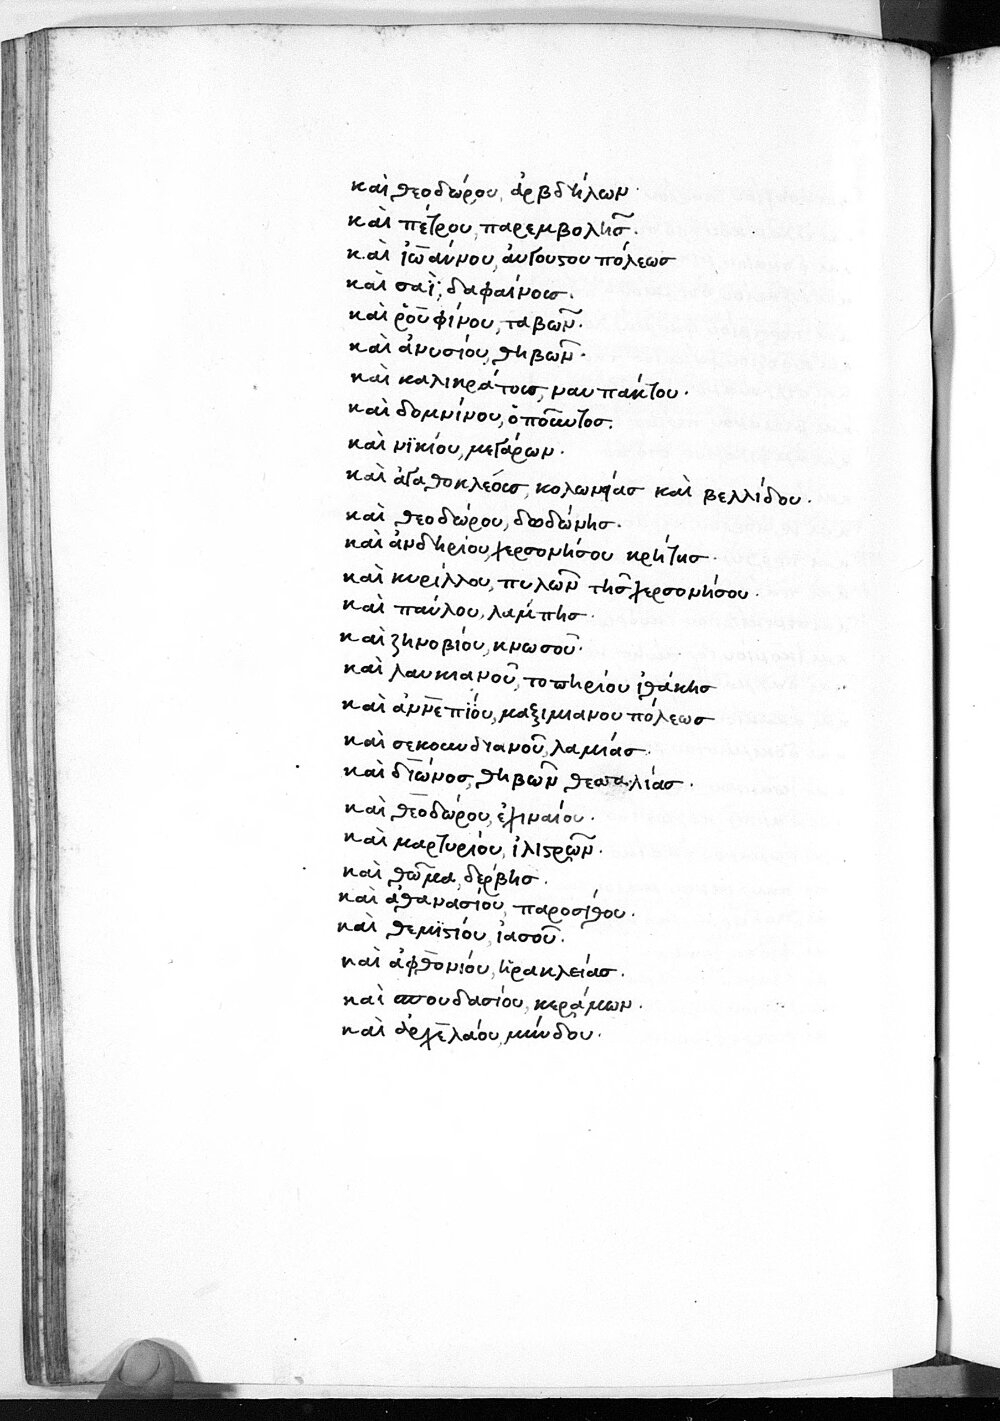 καὶ θεοδώρου, ἀρβδήλων·
καὶ πέτρου, παρεμβολῆσ·
καὶ ἰωάννου, ἀυγούστου πόλεωσ
καὶ σαϊ, δαφαίνουσ.
καὶ ῥουφίνου, ταβῶν·
καὶ ἀνυσίου, θηβῶν·
καὶ καλικράτουσ, ναυπάκτου·
καὶ δομνίνου, ὀποῦντοσ.
καὶ νϊκίου, μεγάρων·
καὶ ἀγαθοκλέουσ, κολωνείασ καὶ βελλίδου·
καὶ θεοδώρου, δωδώνησ·
καὶ ἀνδηρίου, χερσονήσου κρήτησ·
καὶ κυρίλλου, πυλῶν τῆσ χερσονήσου·
καὶ παύλου, λάμπησ·
καὶ ζηνοβίου, κνωσοῦ·
καὶ λαυκιανοῦ, τοπηρίου ἰθάκησ
καὶ ἀννεπίου, μαξιμιανουπόλεωσ
καὶ σεκουνδιανοῦ, λαμίασ·
καὶ δίωνοσ, θηβῶν θεσσαλίασ·
καὶ θεοδώρου, ἐχιναίου·
καὶ μαρτυρίου, ἰλιστρῶν·
καὶ θωμα, δέρβησ·
καὶ ἀθανασίου, παροσίθου·
καὶ θεμϊστίου, ἰασοῦ·
καὶ ἀφθονίου, ἡρακλείασ·
καὶ σπουδασίου, κεράμων·
καὶ ἀρχελάου, μύνδου·